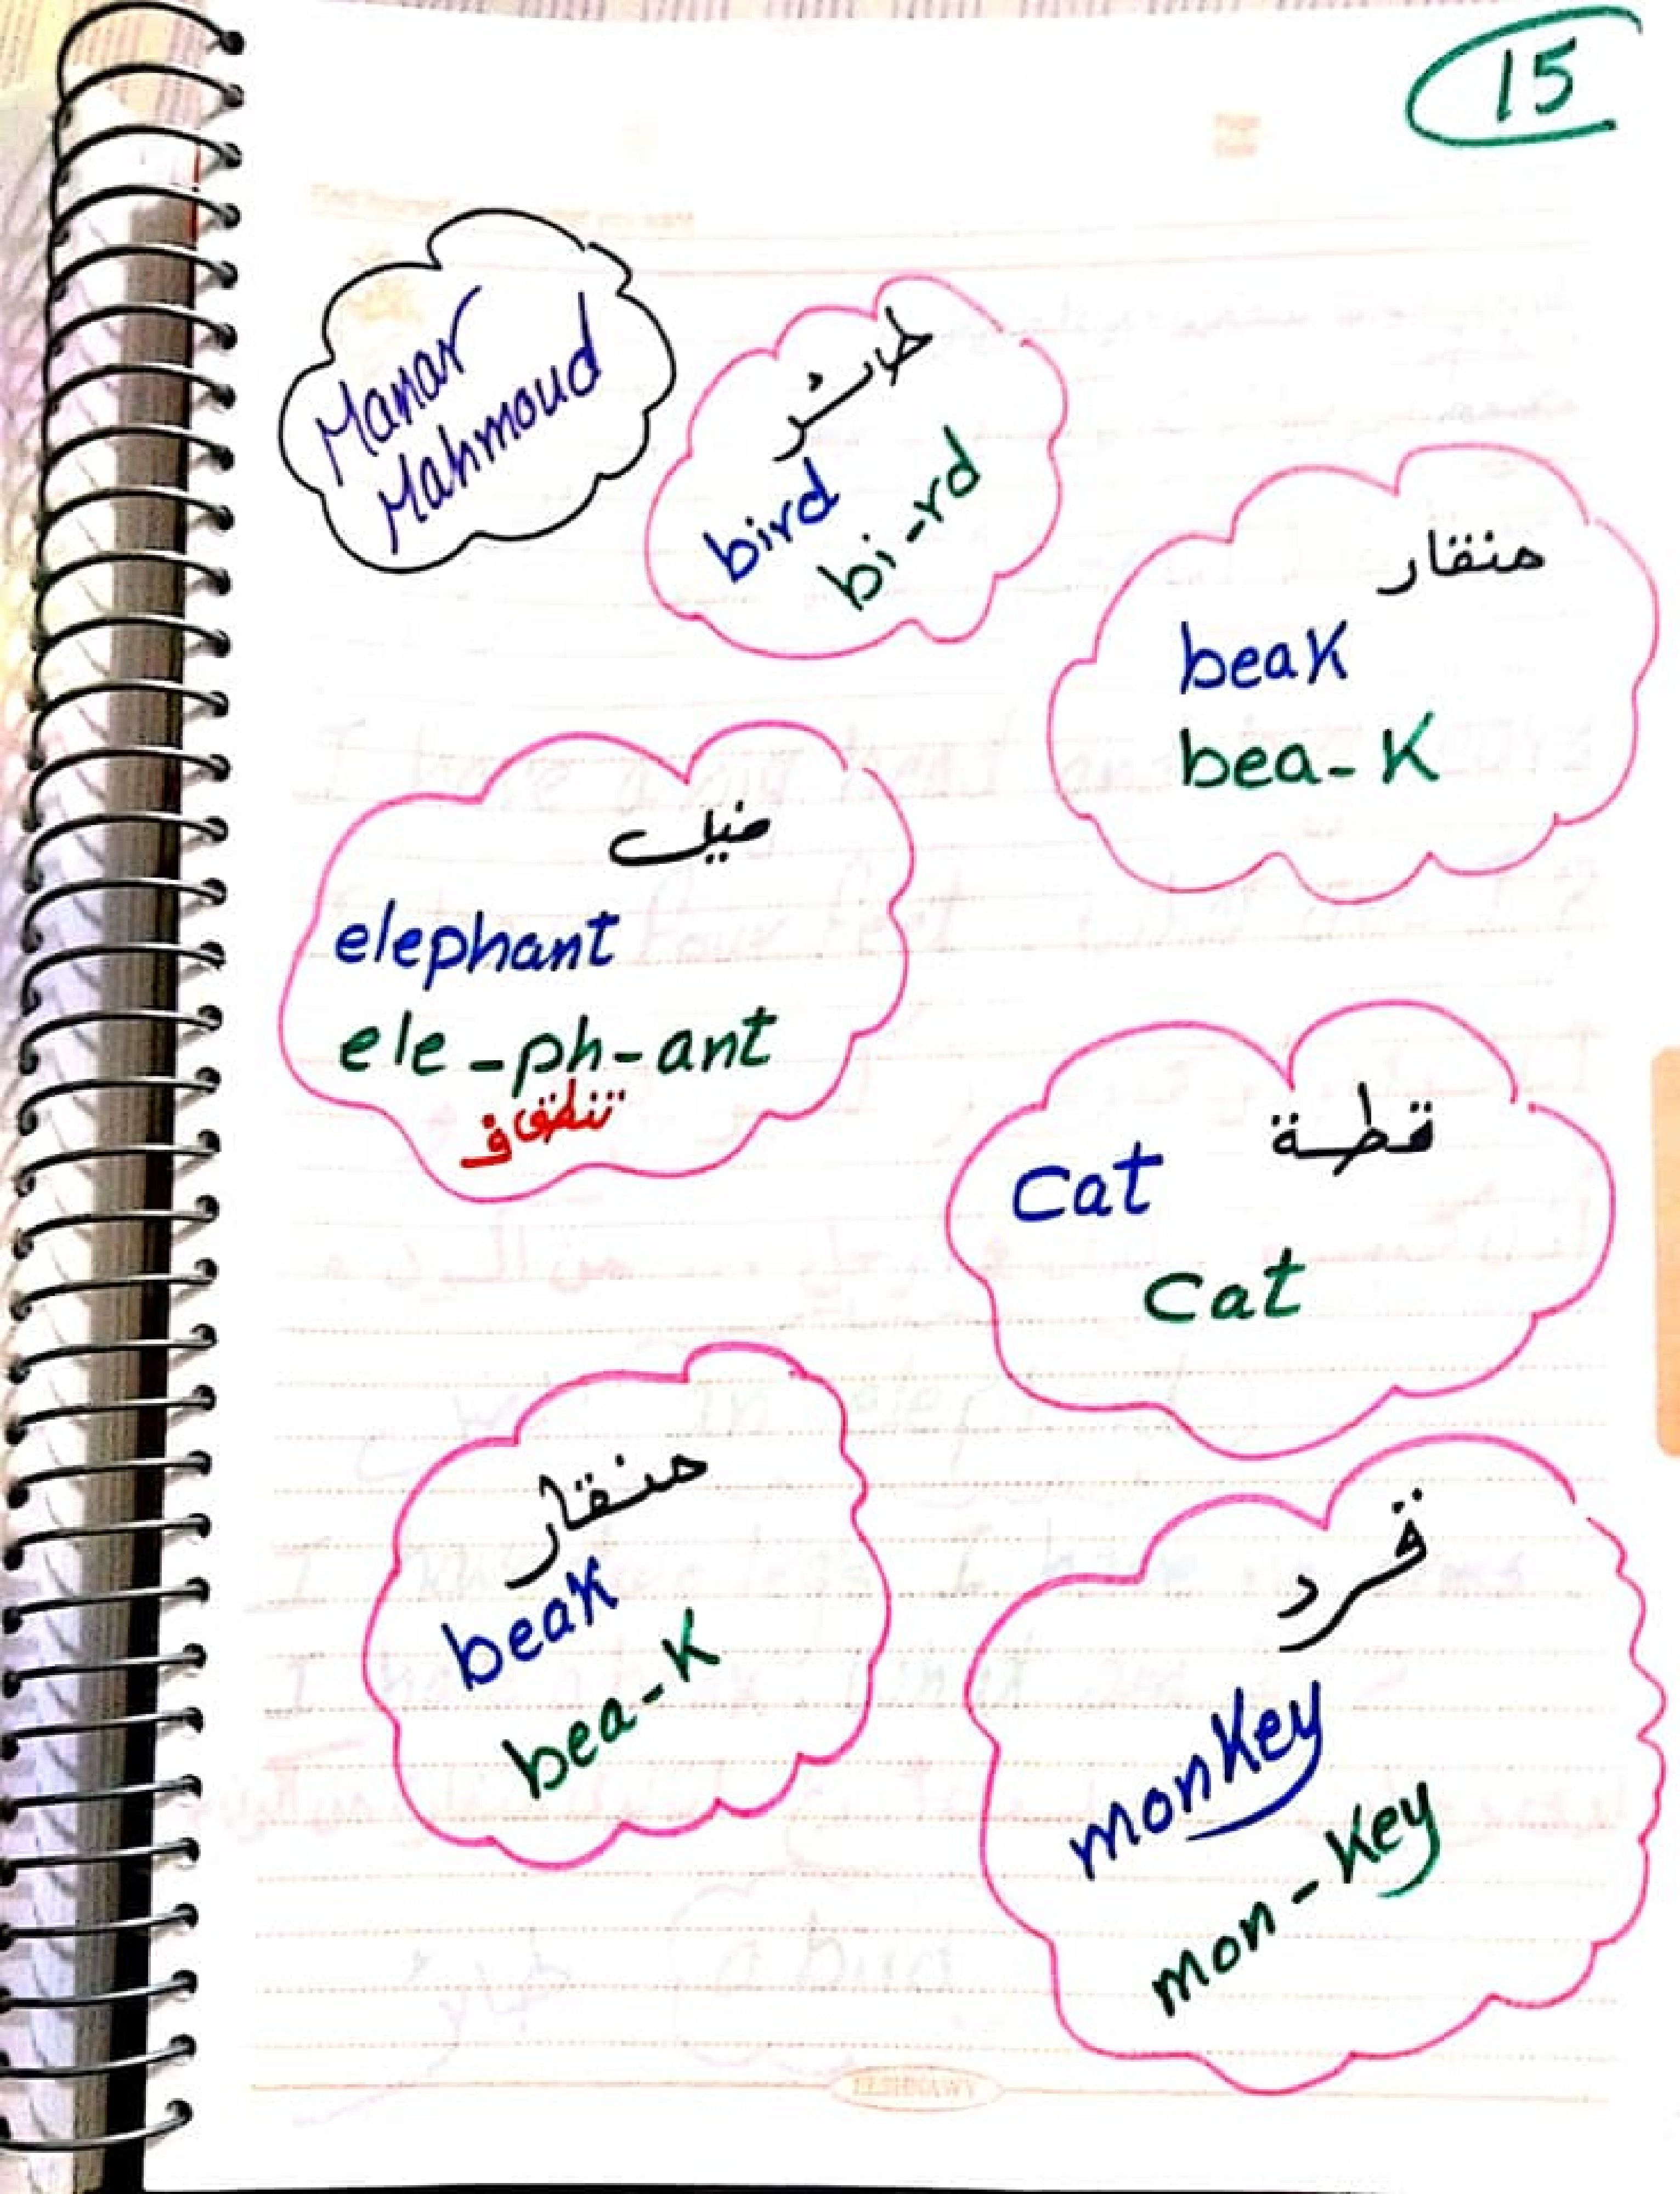 15
Manar
Mahmoud
طائر
bird
bi-rd
منقار
beak
bea-k
فيل
elephant
ele-ph-ant
تنطق ف
قطة
cat
cat
منقار
beak
bea-k
قرد
monkey
mon-key
ELSHINAWY